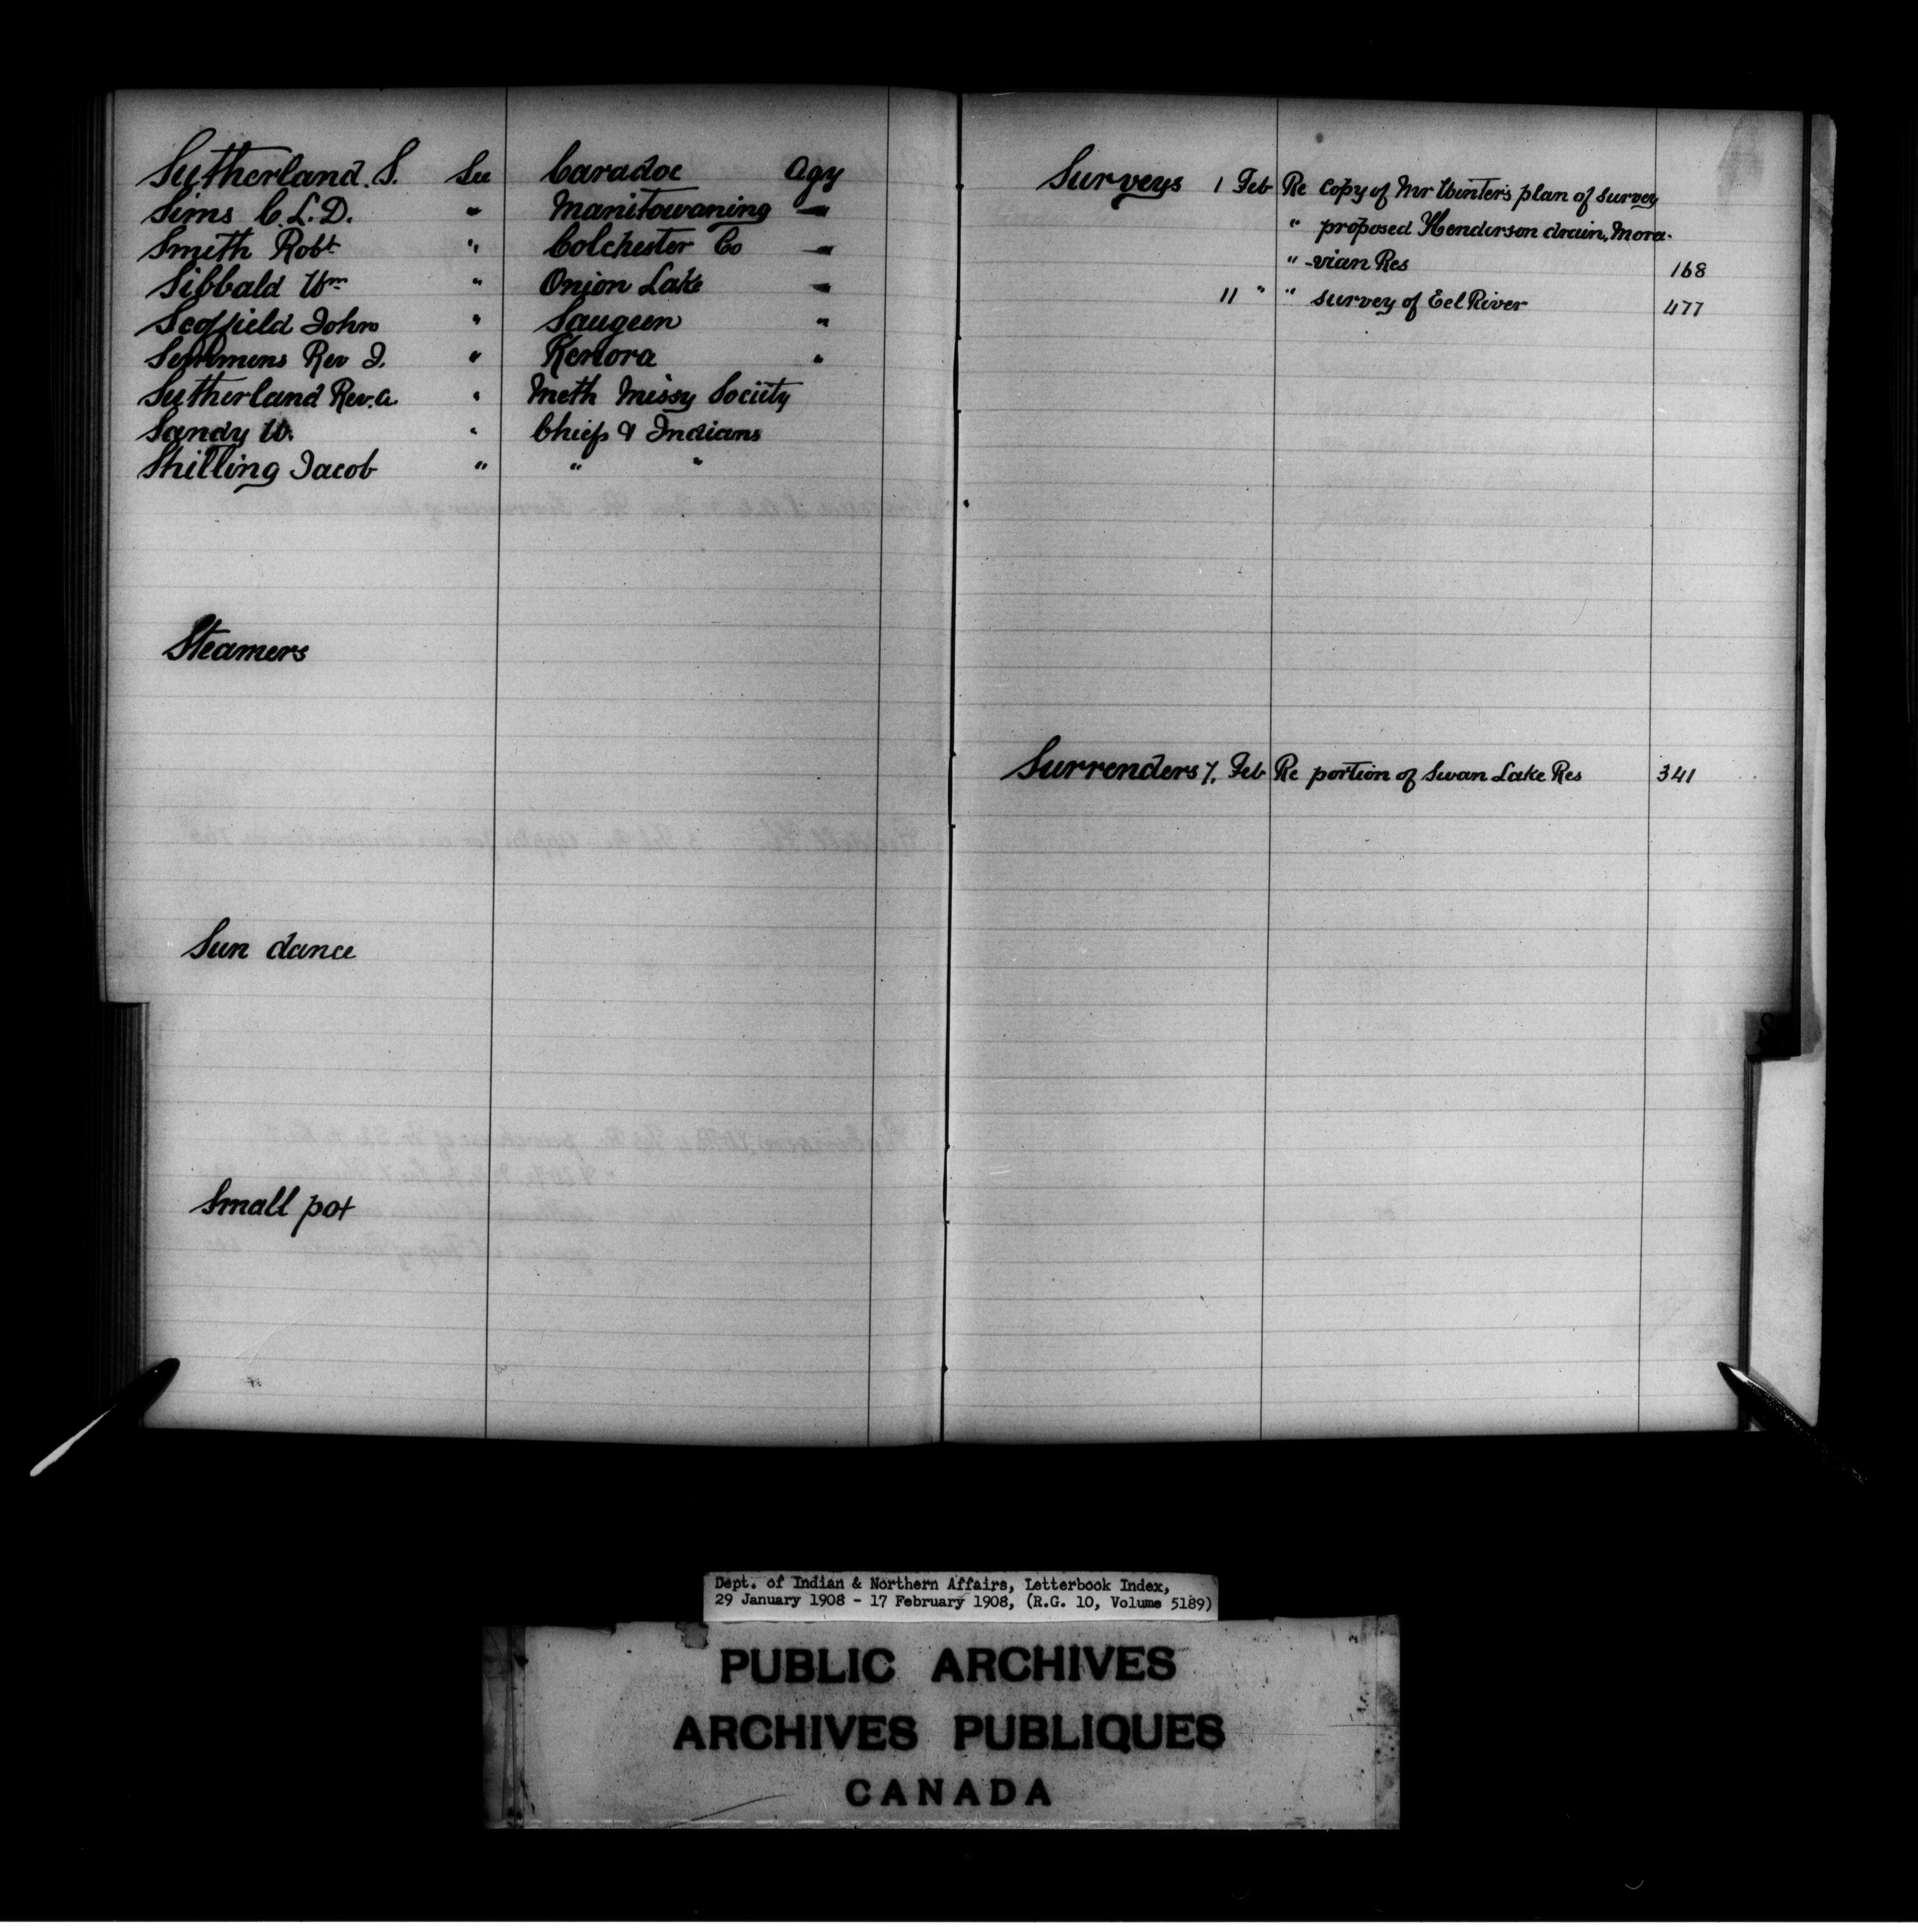 Sutherland. S. See Caradoc Agy
Sims C. L. D. " Manitowaning "
Smith Robt " Colchester Co "
Sibbald Wm " Onion Lake "
Scoffield John " Saugeen "
Semmens Rev J. " Kenora "
Sutherland Rev. A " Meth Missy Society
Sandy W. " Chiefs & Indians
Shilling Jacob " " "
Steamers
Sun dance
Small pox
Surveys 1 Feb Re copy of Mr Winter's plan of survey
" proposed Henderson drain, Mora-
" -vian Res 168
11 " " survey of Eel River 477
Surrenders 7. Feb Re portion of Swan Lake Res 341
S
Dept. of Indian & Northern Affairs, Letterbook Index,
29 January 1908 - 17 February 1908, (R.G. 10, Volume 5189)
PUBLIC ARCHIVES
ARCHIVES PUBLIQUES
CANADA